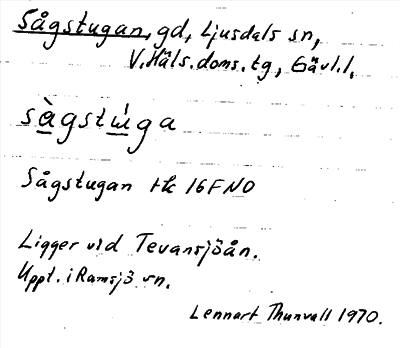 Sågstugan, gd, Ljusdals sn,
V.Häls.doms.tg, Gävl.l.
sàgstẃga
Sågstugan tk 16F NO
Ligger vid Tevansjöån.
Uppt. i Ramsjö sn.
Lennart Thunvall 1970.